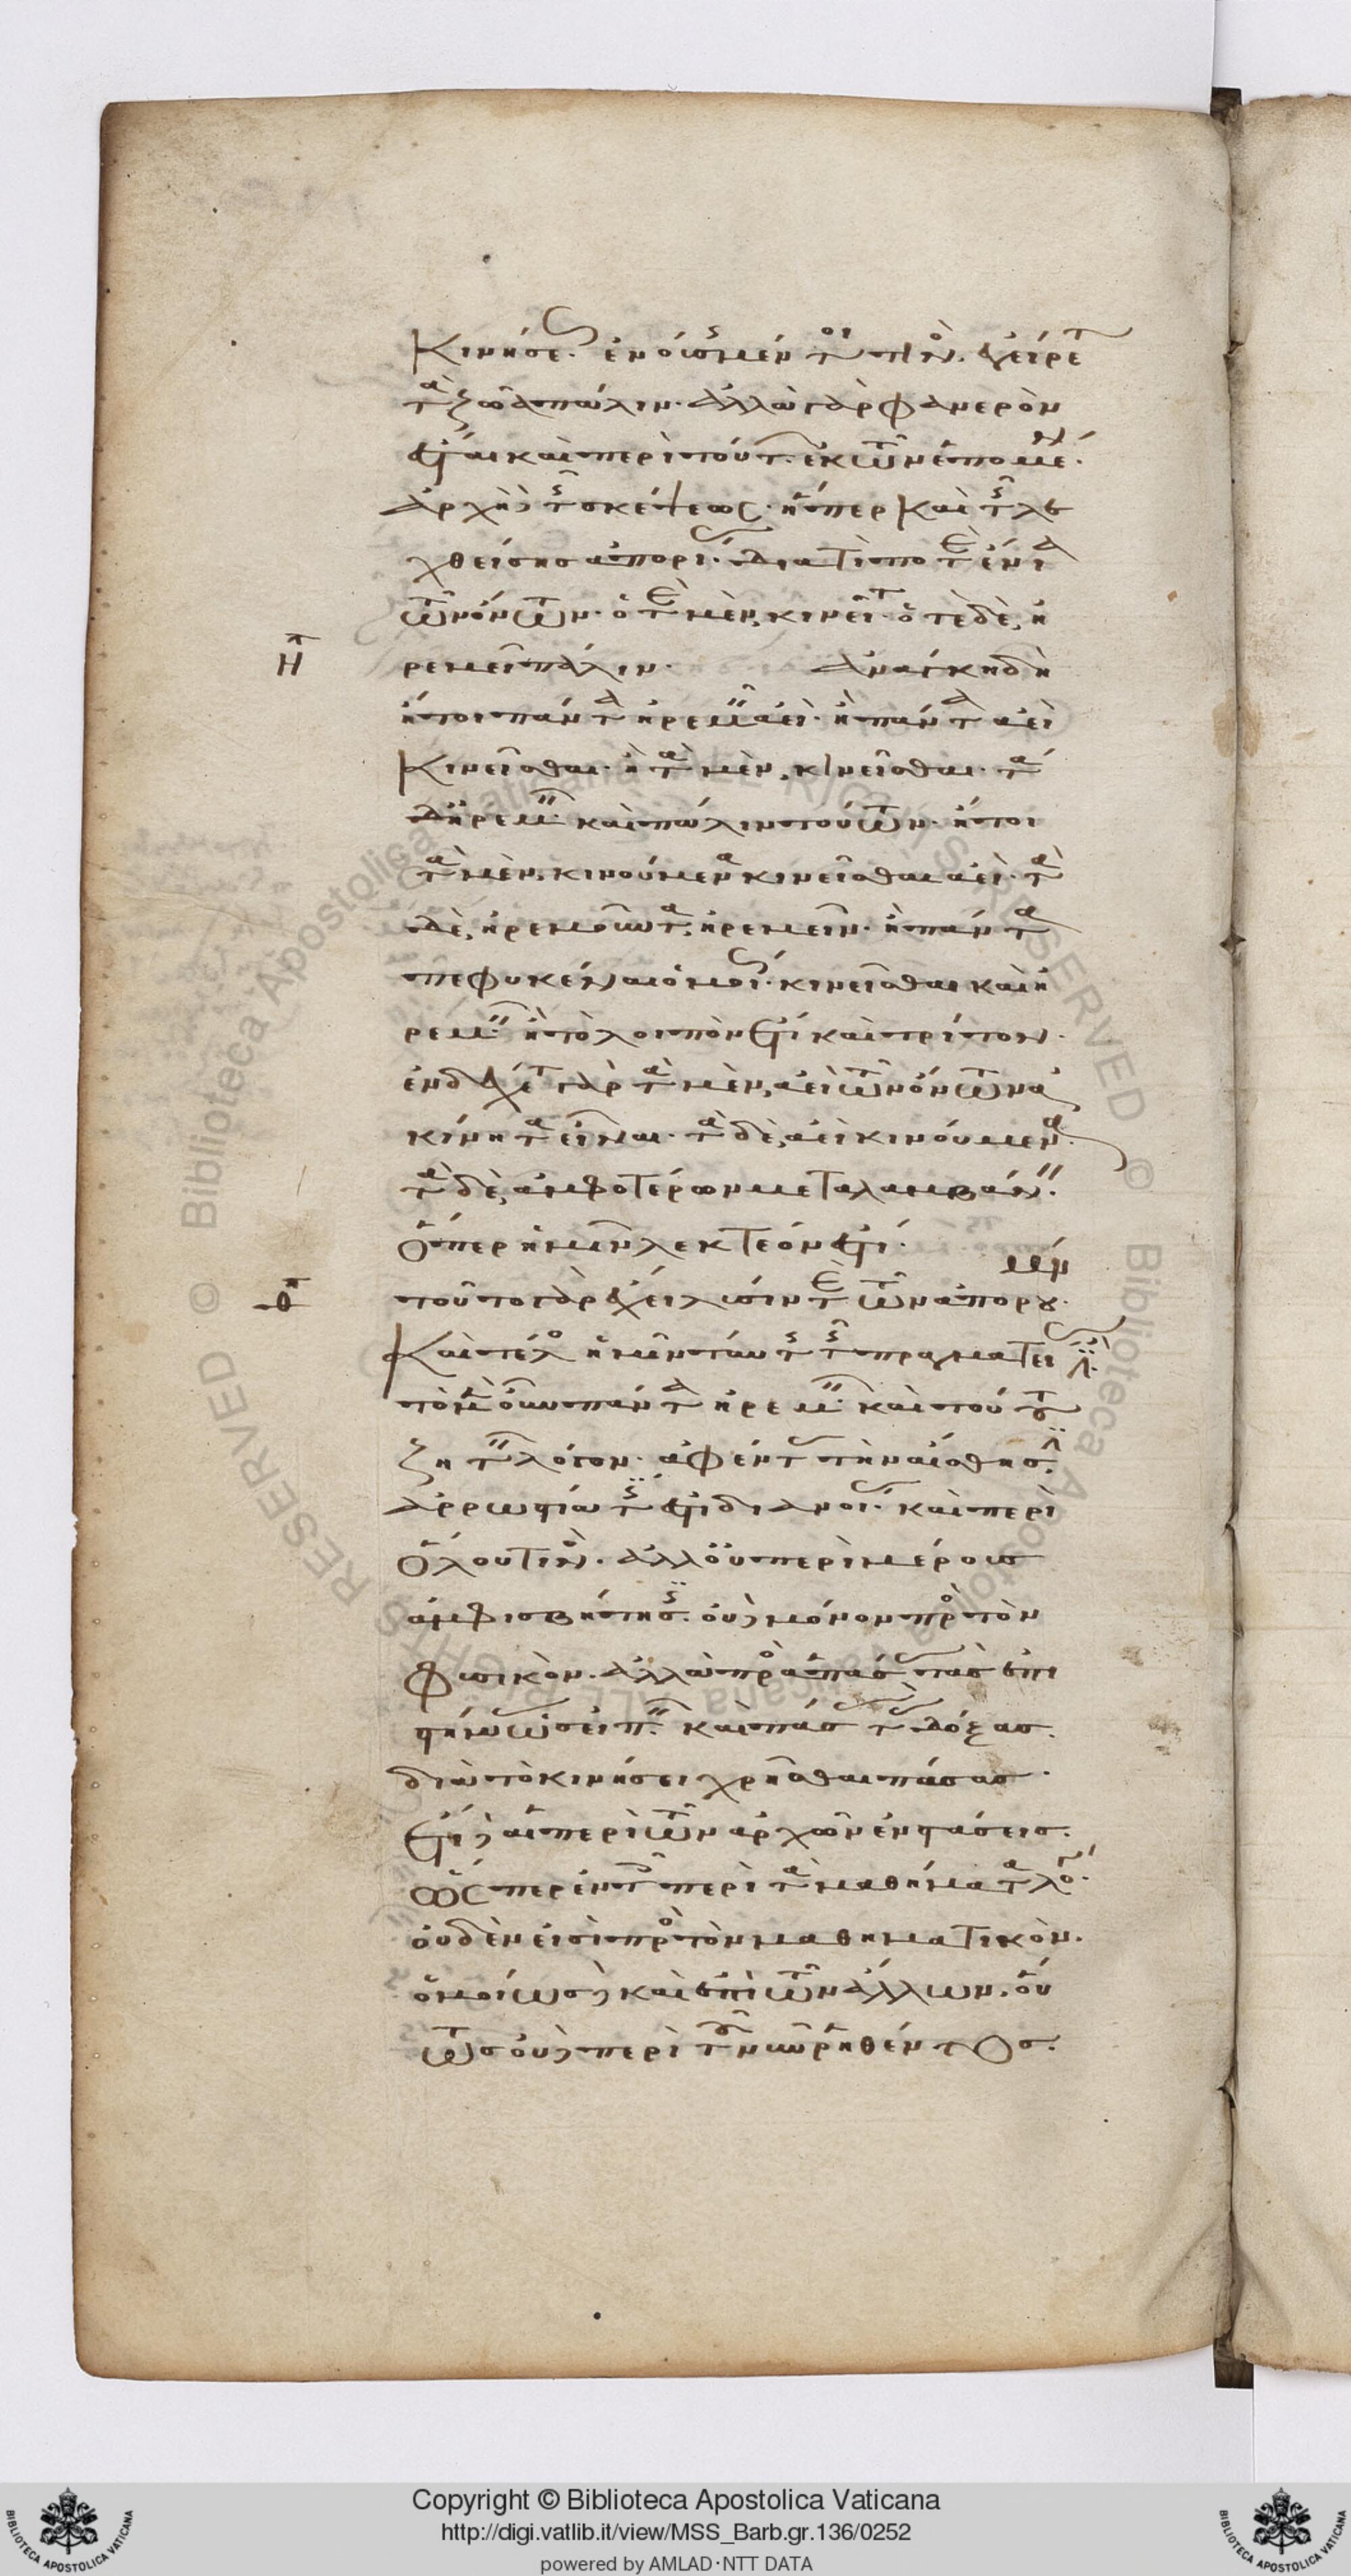 κινήσεις. ἐν οἷς μὲν τοῦ ὕπνου. ἐγείρεται
τὰ ζῶα πάλιν. ἀλλὰ γὰρ φανερὸν
ἔσται καὶ περὶ τούτων ἐκ τῶν ἑπομένων.
ἀρχὴ δὲ τῆς σκέψεως. ἥπερ καὶ τῆς λε
χθείσης ἀπορίας. διατί ποτὲ ἔνια
τῶν ὄντων. ὁτὲ μὲν κινεῖται. ὁτὲ δὲ ἠ
ρεμεῖ πάλιν. ἀνάγκη δὴ
ἤτοι πάντα ἠρεμεῖν ἀεί. ἢ πάντα ἀεὶ
κινεῖσθαι. ἢ τὰ μὲν κινεῖσθαι. τὰ
δ' ἠρεμεῖν. καὶ πάλιν τούτων. ἤτοι
τὰ μὲν κινούμενα κινεῖσθαι ἀεί. τὰ
δὲ ἠρεμοῦντα ἠρεμεῖν. ἢ πάντα
πεφυκέναι ὁμοίως. κινεῖσθαι καὶ ἠ
ρεμεῖν. ἢ τὸ λοιπὸν ἔτι καὶ τρίτον.
ἐνδέχεται γὰρ τὰ μὲν ἀεὶ τῶν ὄντων ἀ
κίνητα εἶναι. τὰ δὲ ἀεὶ κινούμενα.
τὰ δὲ ἀμφοτέρων μεταλαμβάνειν.
ὅπερ ἡμῖν λεκτέον ἐστί.
μέν
τοῦτο γὰρ ἔχει λύσιν τε τῶν ἀπορου.
καὶ τέλος ἡμῖν ταύτης τῆς πραγματείας ἐστίν.
τὸ μὲν οὖν πάντα ἠρεμεῖν. καὶ τούτου
ζητεῖν λόγον. ἀφέντας τὴν αἴσθησιν.
ἀρρωστία τίς ἐστι διανοίας. καὶ περὶ
ὅλου τινός. ἀλλ' οὐ περὶ μέρους
ἀμφισβήτησις. οὐδὲ μόνον πρὸς τὸν
φυσικὸν. ἀλλὰ πρὸς ἁπάσας τὰς ἐπι
στήμας ὡς εἰπεῖν. καὶ πάσας τὰς δόξας.
διὰ τὸ κινήσει χρῆσθαι πάσας.
ἔτι δὲ αἱ περὶ τῶν ἀρχῶν ἐνστάσεις.
ὥσπερ ἐν τοῖς περὶ τὰ μαθήματα λόγοις.
οὐδὲν εἰσὶ πρὸς τὸν μαθηματικὸν.
ὁμοίως δὲ καὶ ἐπὶ τῶν ἄλλων. οὕ
τως οὐδὲ περὶ τοῦ νῦν ῥηθέντος.
Η
Θ
Copyright © Biblioteca Apostolica Vaticana
http://digi.vatlib.it/view/MSS_Barb.gr.136/0252
powered by AMLAD·NTT DATA